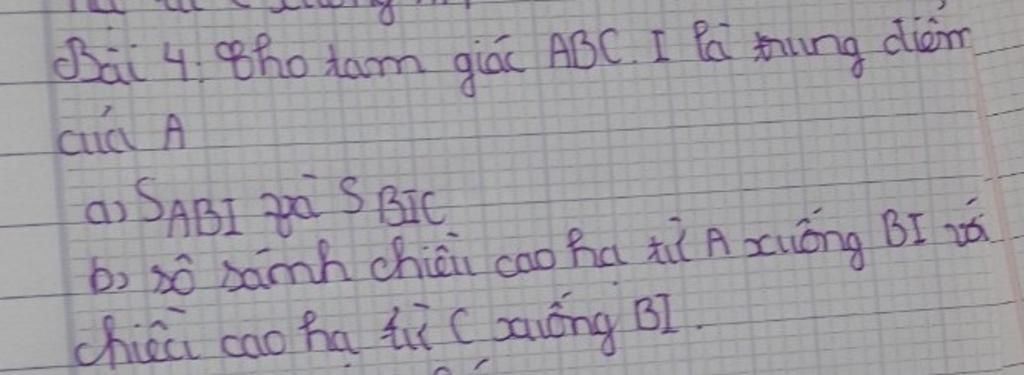 Bài 4: Cho tam giác ABC. I là trung điểm
của A
a) S ABI và S BIC
b) sô sánh chiều cao hạ từ A xuống BI và
chiều cao hạ từ C xuống BI.